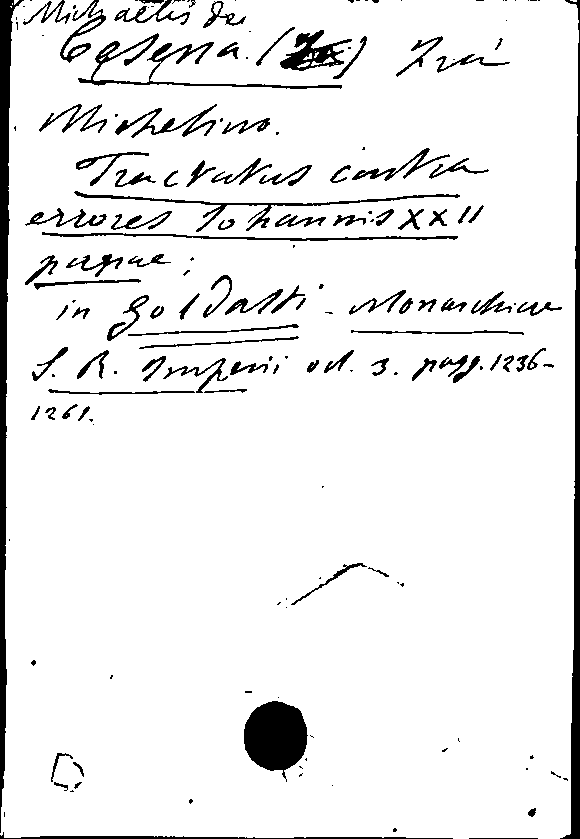 Michaelis de
Cesena. ( ) Frà
Michelino.
Tractatus contra
errores Iohannis XXII
papae;
in Goldasti - Monarchiae
S. R. Imperii vol. 3. pagg. 1236-
1261.